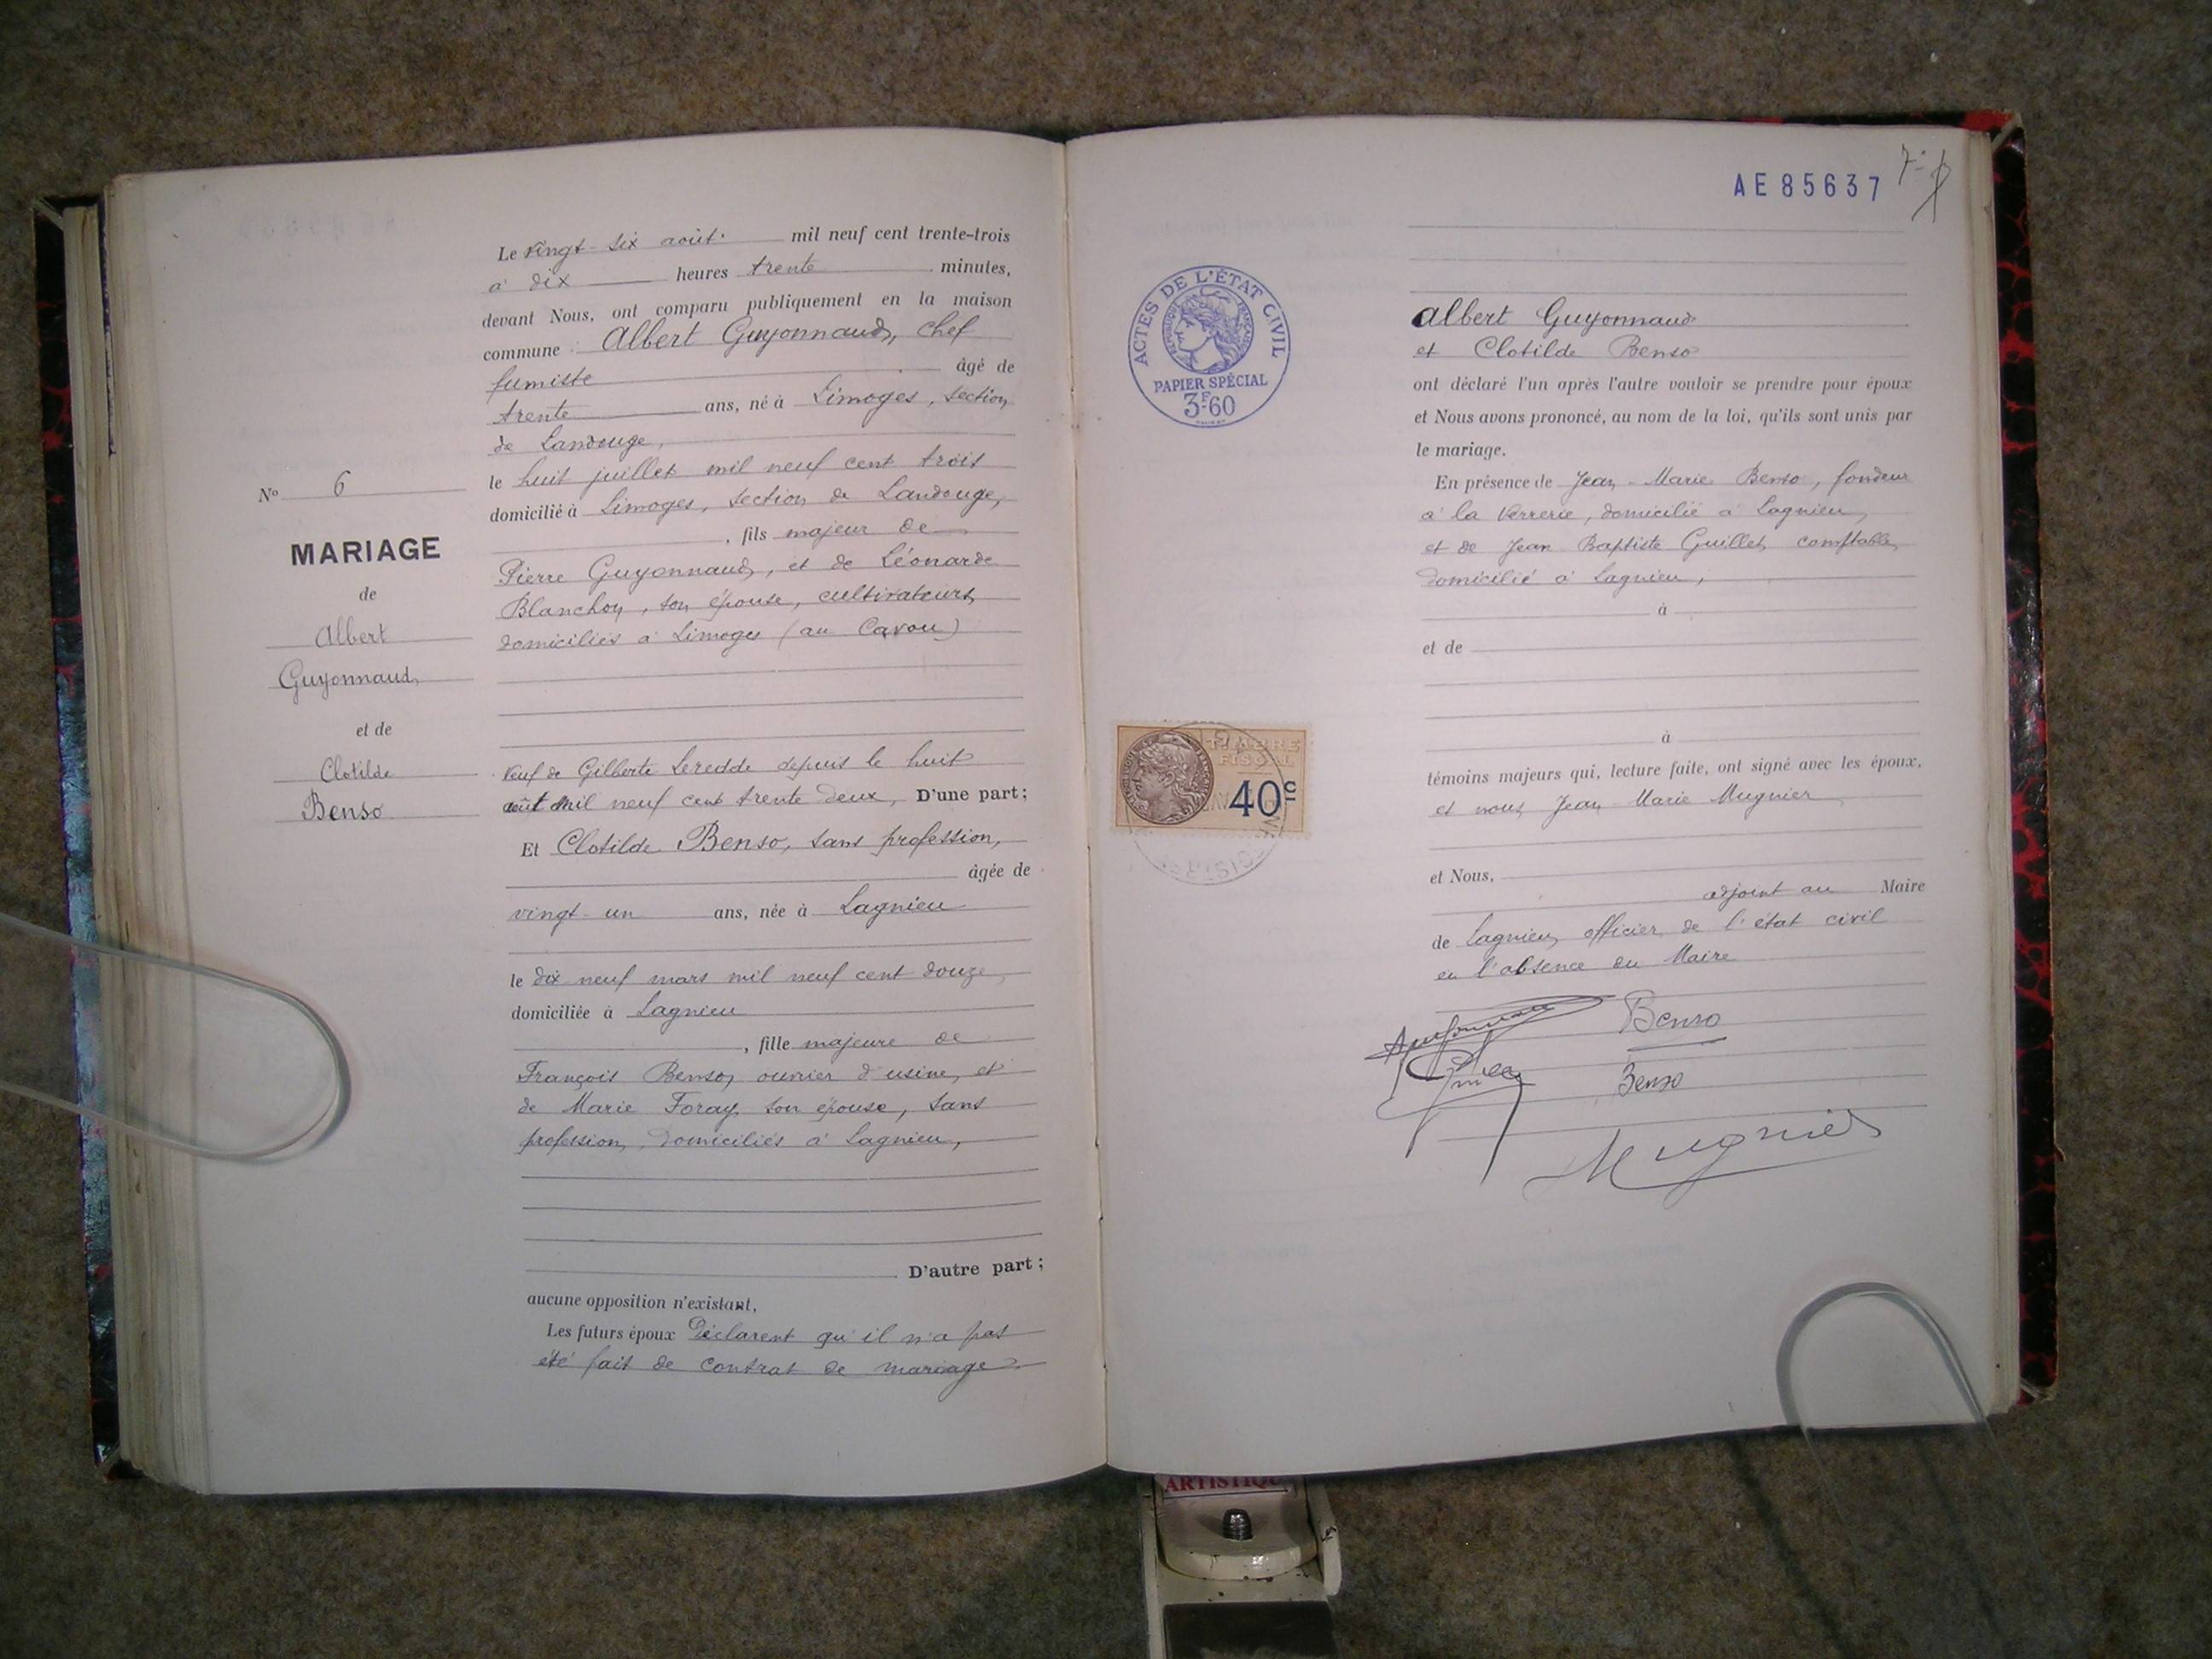 Nº 6
MARIAGE
de
Albert
Guyonnaud
et de
Clotilde
Benso
Le vingt-six août mil neuf cent trente-trois
à dix heures trente minutes,
devant Nous, ont comparu publiquement en la maison
commune : Albert Guyonnaud, chef
fumiste âgé de
trente ans, né à Limoges, section
de Landouge,
le huit juillet mil neuf cent trois
domicilié à Limoges, section de Landouge,
, fils majeur de
Pierre Guyonnaud, et de Léonarde
Blanchon, son épouse, cultivateurs
domiciliés à Limoges (au Cavou)
veuf de Gilberte Leredde depuis le huit
août mil neuf cent trente deux, D'une part;
Et Clotilde Benso, sans profession,
âgée de
vingt-un ans, née à Lagnieu
le dix-neuf mars mil neuf cent douze,
domiciliée à Lagnieu
, fille majeure de
François Benso, ouvrier d'usine, et
de Marie Foray son épouse, sans
profession, domiciliés à Lagnieu,
D'autre part;
aucune opposition n'existant,
Les futurs époux Déclarent qu'il n'a pas
été fait de contrat de mariage
AE85637
ACTES DE L'ÉTAT CIVIL
RÉPUBLIQUE FRANÇAISE
PAPIER SPÉCIAL
3F.60
TIMBRE
FISCAL
40c
Albert Guyonnaud
et Clotilde Benso
ont déclaré l'un après l'autre vouloir se prendre pour époux
et Nous avons prononcé, au nom de la loi, qu'ils sont unis par
le mariage.
En présence de Jean-Marie Benso, fondeur
à la verrerie, domicilié à Lagnieu,
et de Jean Baptiste Guillet, comptable,
domicilié à Lagnieu,
à
et de
à
témoins majeurs qui, lecture faite, ont signé avec les époux,
et nous Jean-Marie Mugnier
et Nous,
adjoint au Maire
de Lagnieu, officier de l'état civil
en l'absence du Maire
Benso
Benso
Mugnier
ARTISTIQUE